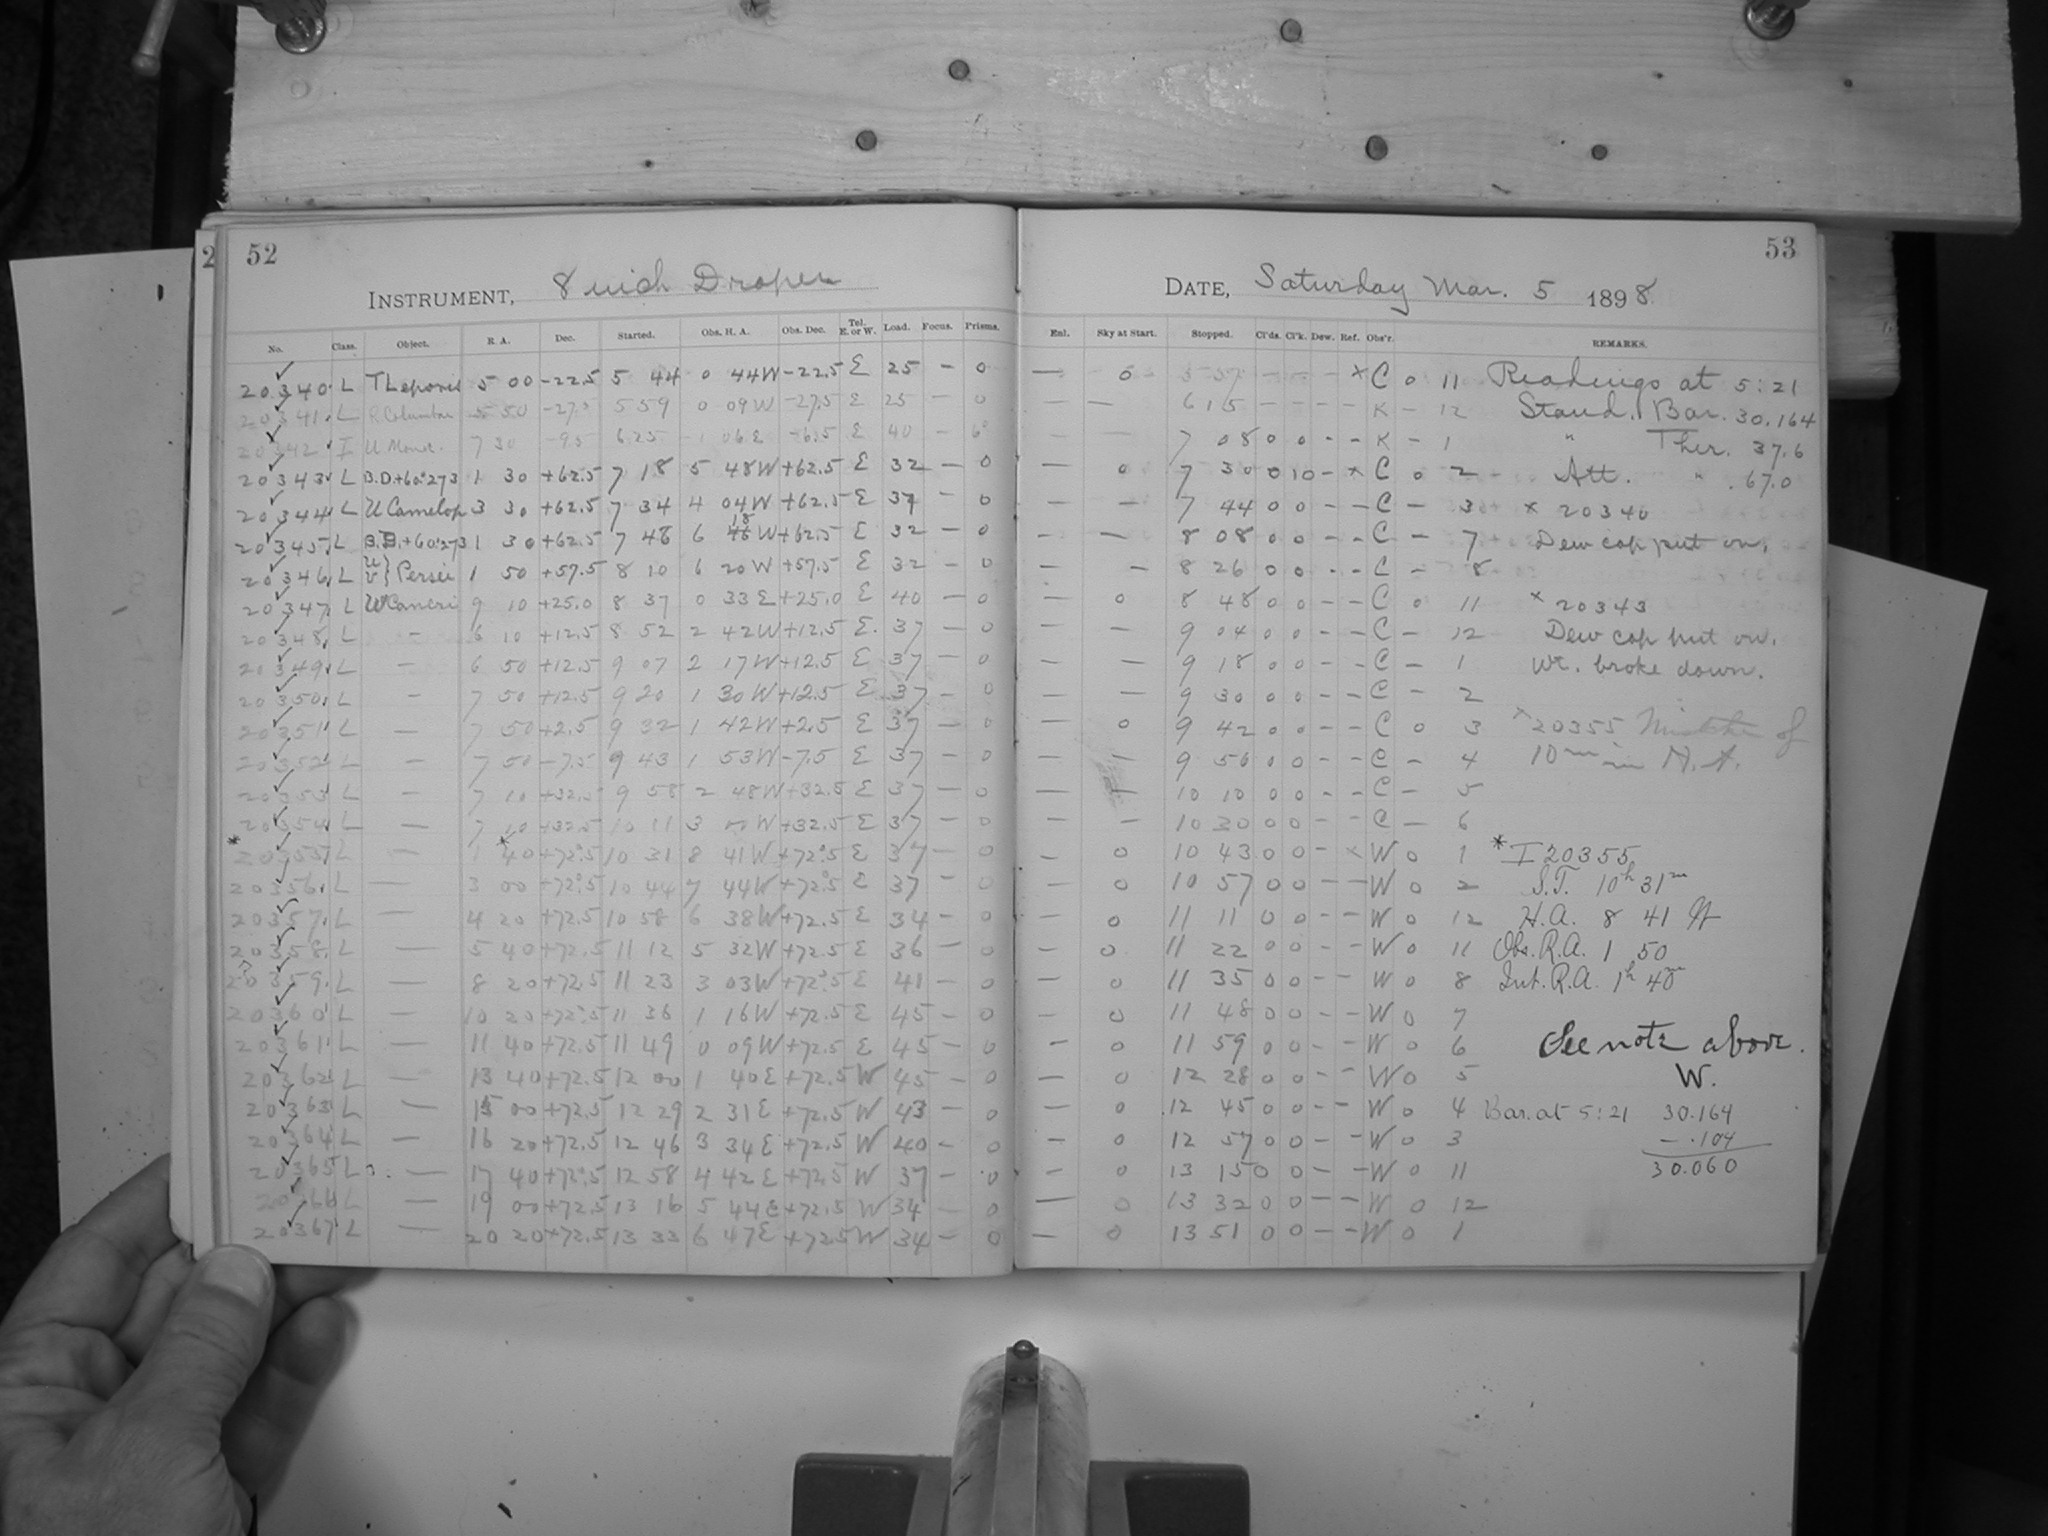 2
52
INSTRUMENT, 8 inch Draper
No. Class. Object. R. A. Dec. Started. Obs. H. A. Obs. Dec. Tel. E. or W. Load. Focus. Prisms.
20340 L T Leporis 5 00 -22.5 5 44 0 44W -22.5 E 25 - 0
20341 L R Columbae 5 50 -27.5 5 59 0 09W -27.5 E 25 - 0
20342 I U Monoc. 7 30 -9.5 6 25 1 06 E E 40 -
20343 L B.D.+60°273 1 30 +62.5 7 18 5 48W +62.5 E 32 - 0
20344 L U Camelop 3 30 +62.5 7 34 4 04W +62.5 E 37 - 0
20345 L B.D.+60°273 1 30 +62.5 7 48 6 18 W +62.5 E 32 - 0
20346 L U V } Persei 1 50 +57.5 8 10 6 20 W +57.5 E 32 - 0
20347 L W Cancri 9 10 +25.0 8 37 0 33 E +25.0 E 40 - 0
20348 L - 6 10 +12.5 8 52 2 42W +12.5 E. 37 - 0
20349 L - 6 50 +12.5 9 07 2 17W +12.5 E 37 - 0
20350 L - 7 50 +12.5 9 20 1 30W +12.5 E 37 - 0
20351 L - 7 50 +2.5 9 32 1 42W +2.5 E 37 - 0
20352 L - 7 50 -7.5 9 43 1 53W -7.5 E 37 - 0
20353 L - 7 10 +32.5 9 58 2 48W +32.5 E 37 - 0
20354 L - 7 10 +32.5 10 11 3 00W +32.5 E 37 - 0
* 20355 L - 1 40 +72°.5 10 31 8 41W +72°.5 E 37 - 0
20356 L - 3 00 +72°.5 10 44 7 44W +72°.5 E 37 - 0
20357 L - 4 20 +72.5 10 58 6 38W +72.5 E 34 - 0
20358 L - 5 40 +72.5 11 12 5 32W +72.5 E 36 - 0
20359 L - 8 20 +72.5 11 23 3 03W +72°.5 E 41 - 0
20360 L - 10 20 +72°.5 11 36 1 16W +72.5 E 45 - 0
20361 L - 11 40 +72.5 11 49 0 09W +72.5 E 45 - 0
20362 L - 13 40 +72.5 12 00 1 40E +72.5 W 45 - 0
20363 L - 15 00 +72.5 12 29 2 31E +72.5 W 43 - 0
20364 L - 16 20 +72.5 12 46 3 34E +72.5 W 40 - 0
20365 L - 17 40 +72°.5 12 58 4 42E +72.5 W 37 - 0
20366 L - 19 00 +72.5 13 16 5 44E +72.5 W 34 - 0
20367 L - 20 20 +72.5 13 33 6 47E +72.5 W 34 - 0
53
DATE, Saturday Mar. 5 1898.
Enl. Sky at Start. Stopped. Cl'ds. Cl'k. Dew. Ref. Obs'r. REMARKS.
- 0 5 57 - - - × C 0 11 Readings at 5:21
- - 6 15 - - - - K - 12 Stand. Bar. 30.164
- - 7 08 0 0 - - K - 1 " Ther. 37.6
- 0 7 30 0 10 - × C 0 2 Att. " 67.0
- - 7 44 0 0 - - C - 3 × 20340
- - 8 08 0 0 - - C - 7 Dew cap put on.
- - 8 26 0 0 - - C - 8
- 0 8 48 0 0 - - C 0 11 × 20343
- - 9 04 0 0 - - C - 12 Dew cap put on.
- - 9 18 0 0 - - C - 1 Wt. broke down.
- - 9 30 0 0 - - C - 2
- 0 9 42 0 0 - - C 0 3 × 20355 Mistake of
- - 9 56 0 0 - - C - 4 10m in H.A.
- - 10 10 0 0 - - C - 5
- - 10 30 0 0 - - C - 6
- 0 10 43 0 0 - × W 0 1 * I 20355
- 0 10 57 0 0 - - W 0 2 S.T. 10h 31m
- 0 11 11 0 0 - - W 0 12 H.A. 8 41 W
- 0 11 22 0 0 - - W 0 11 Obs. R.A. 1 50
- 0 11 35 0 0 - - W 0 8 Int. R.A. 1h 40m
- 0 11 48 0 0 - - W 0 7
- 0 11 59 0 0 - - W 0 6 See note above.
- 0 12 28 0 0 - - W 0 5 W.
- 0 12 45 0 0 - - W 0 4 Bar. at 5:21 30.164
- 0 12 57 0 0 - - W 0 3 -.104
- 0 13 15 0 0 - - W 0 11 30.060
- 0 13 32 0 0 - - W 0 12
- 0 13 51 0 0 - - W 0 1